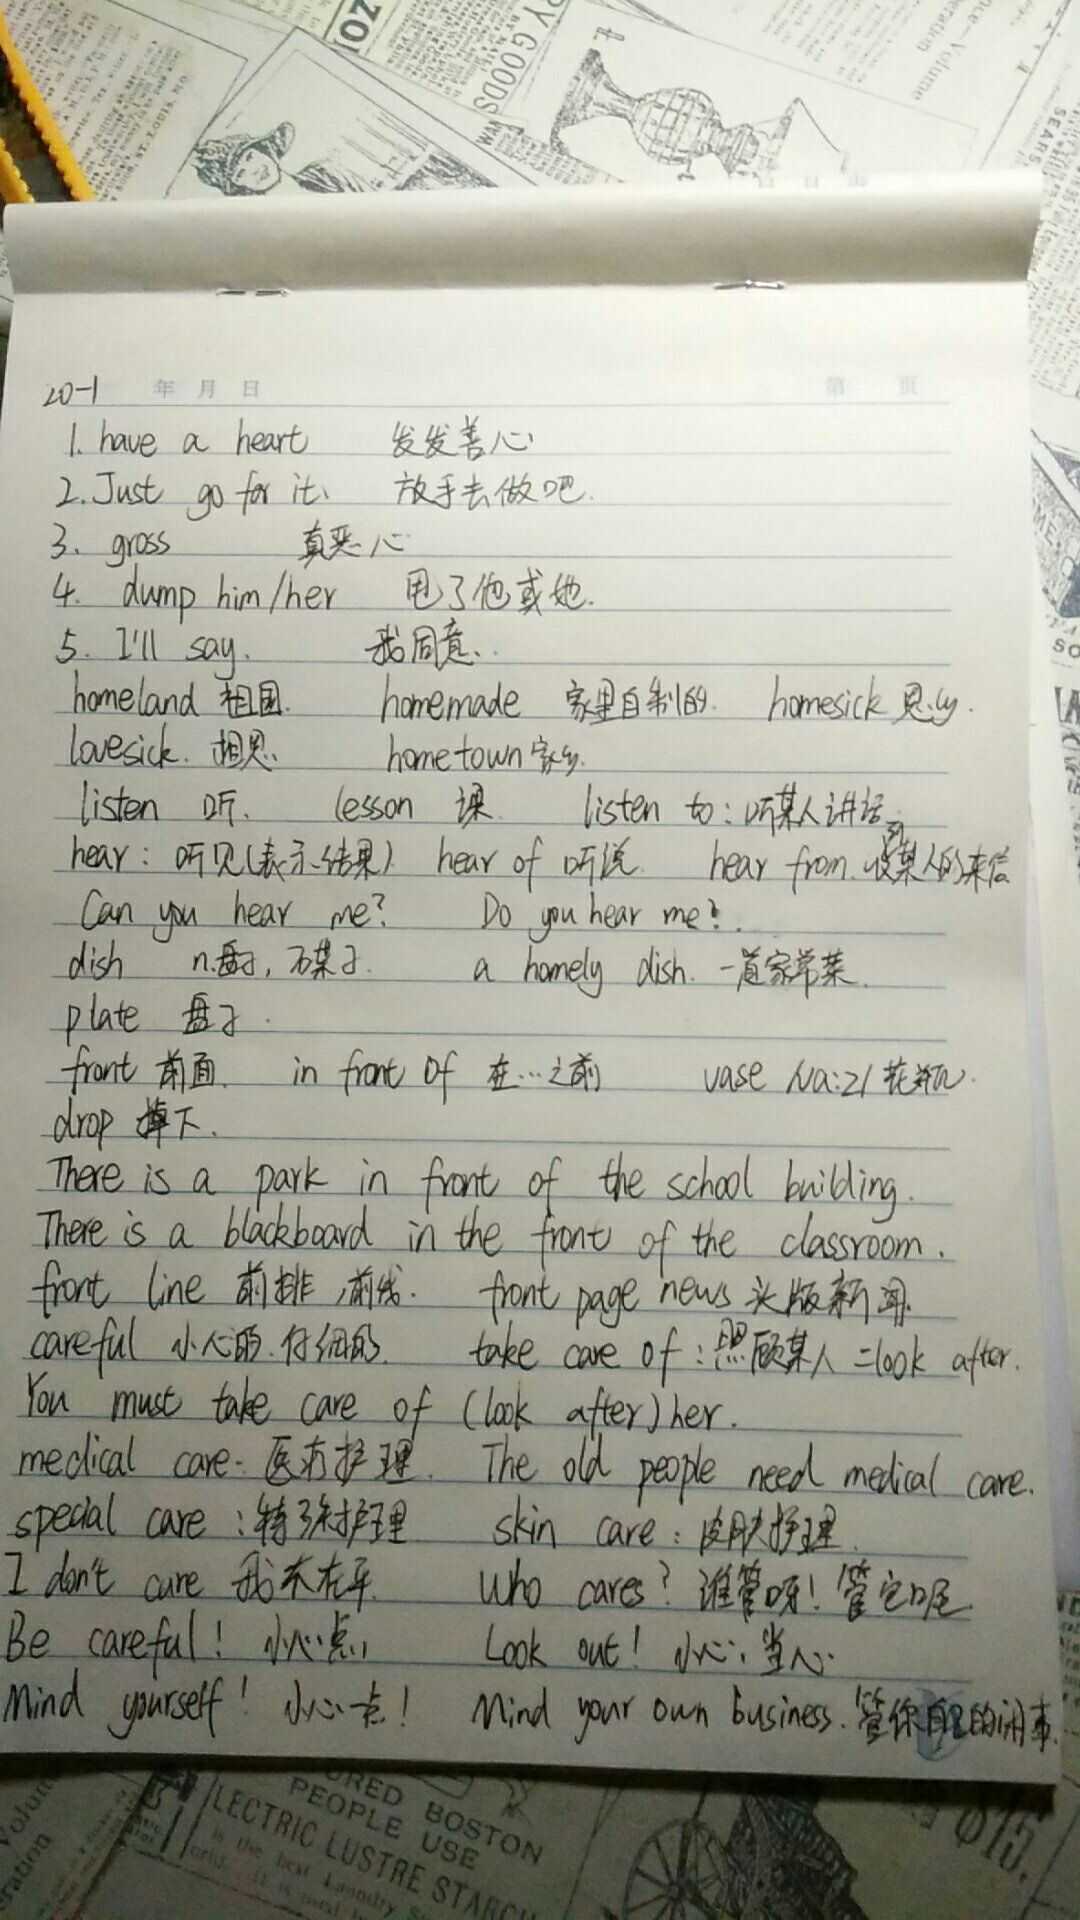 ZO
Y GOODS
Volume
SEARS
20-1 年 月 日 第 页
1. have a heart 发发善心
2. Just go for it. 放手去做吧.
3. gross 真恶心
4. dump him/her 甩了他或她.
5. I'll say. 我同意.
homeland 祖国. homemade 家里自制的. homesick 思乡.
lovesick. 相思. hometown 家乡.
listen 听. lesson 课 listen to: 听某人讲话
hear: 听见(表示结果) hear of 听说 hear from. 收到某人的来信
Can you hear me? Do you hear me?.
dish n.盘子, 菜 a homely dish. 一道家常菜.
plate 盘子.
front 前面. in front of 在…之前 vase /va:z/ 花瓶.
drop 掉下.
There is a park in front of the school building.
There is a blackboard in the front of the classroom.
front line 前排, 前线. front page news 头版新闻.
careful 小心的.仔细的. take care of: 照顾某人 =look after.
You must take care of (look after) her.
medical care: 医疗护理. The old people need medical care.
special care: 特殊护理 skin care: 皮肤护理.
I don't care 我不在乎. Who cares? 谁管呀! 管它呢.
Be careful! 小心点, Look out! 小心, 当心.
Mind yourself! 小心点! Mind your own business. 管你自己的闲事.
URED BOSTON
PEOPLE USE
LECTRIC LUSTRE STARCH